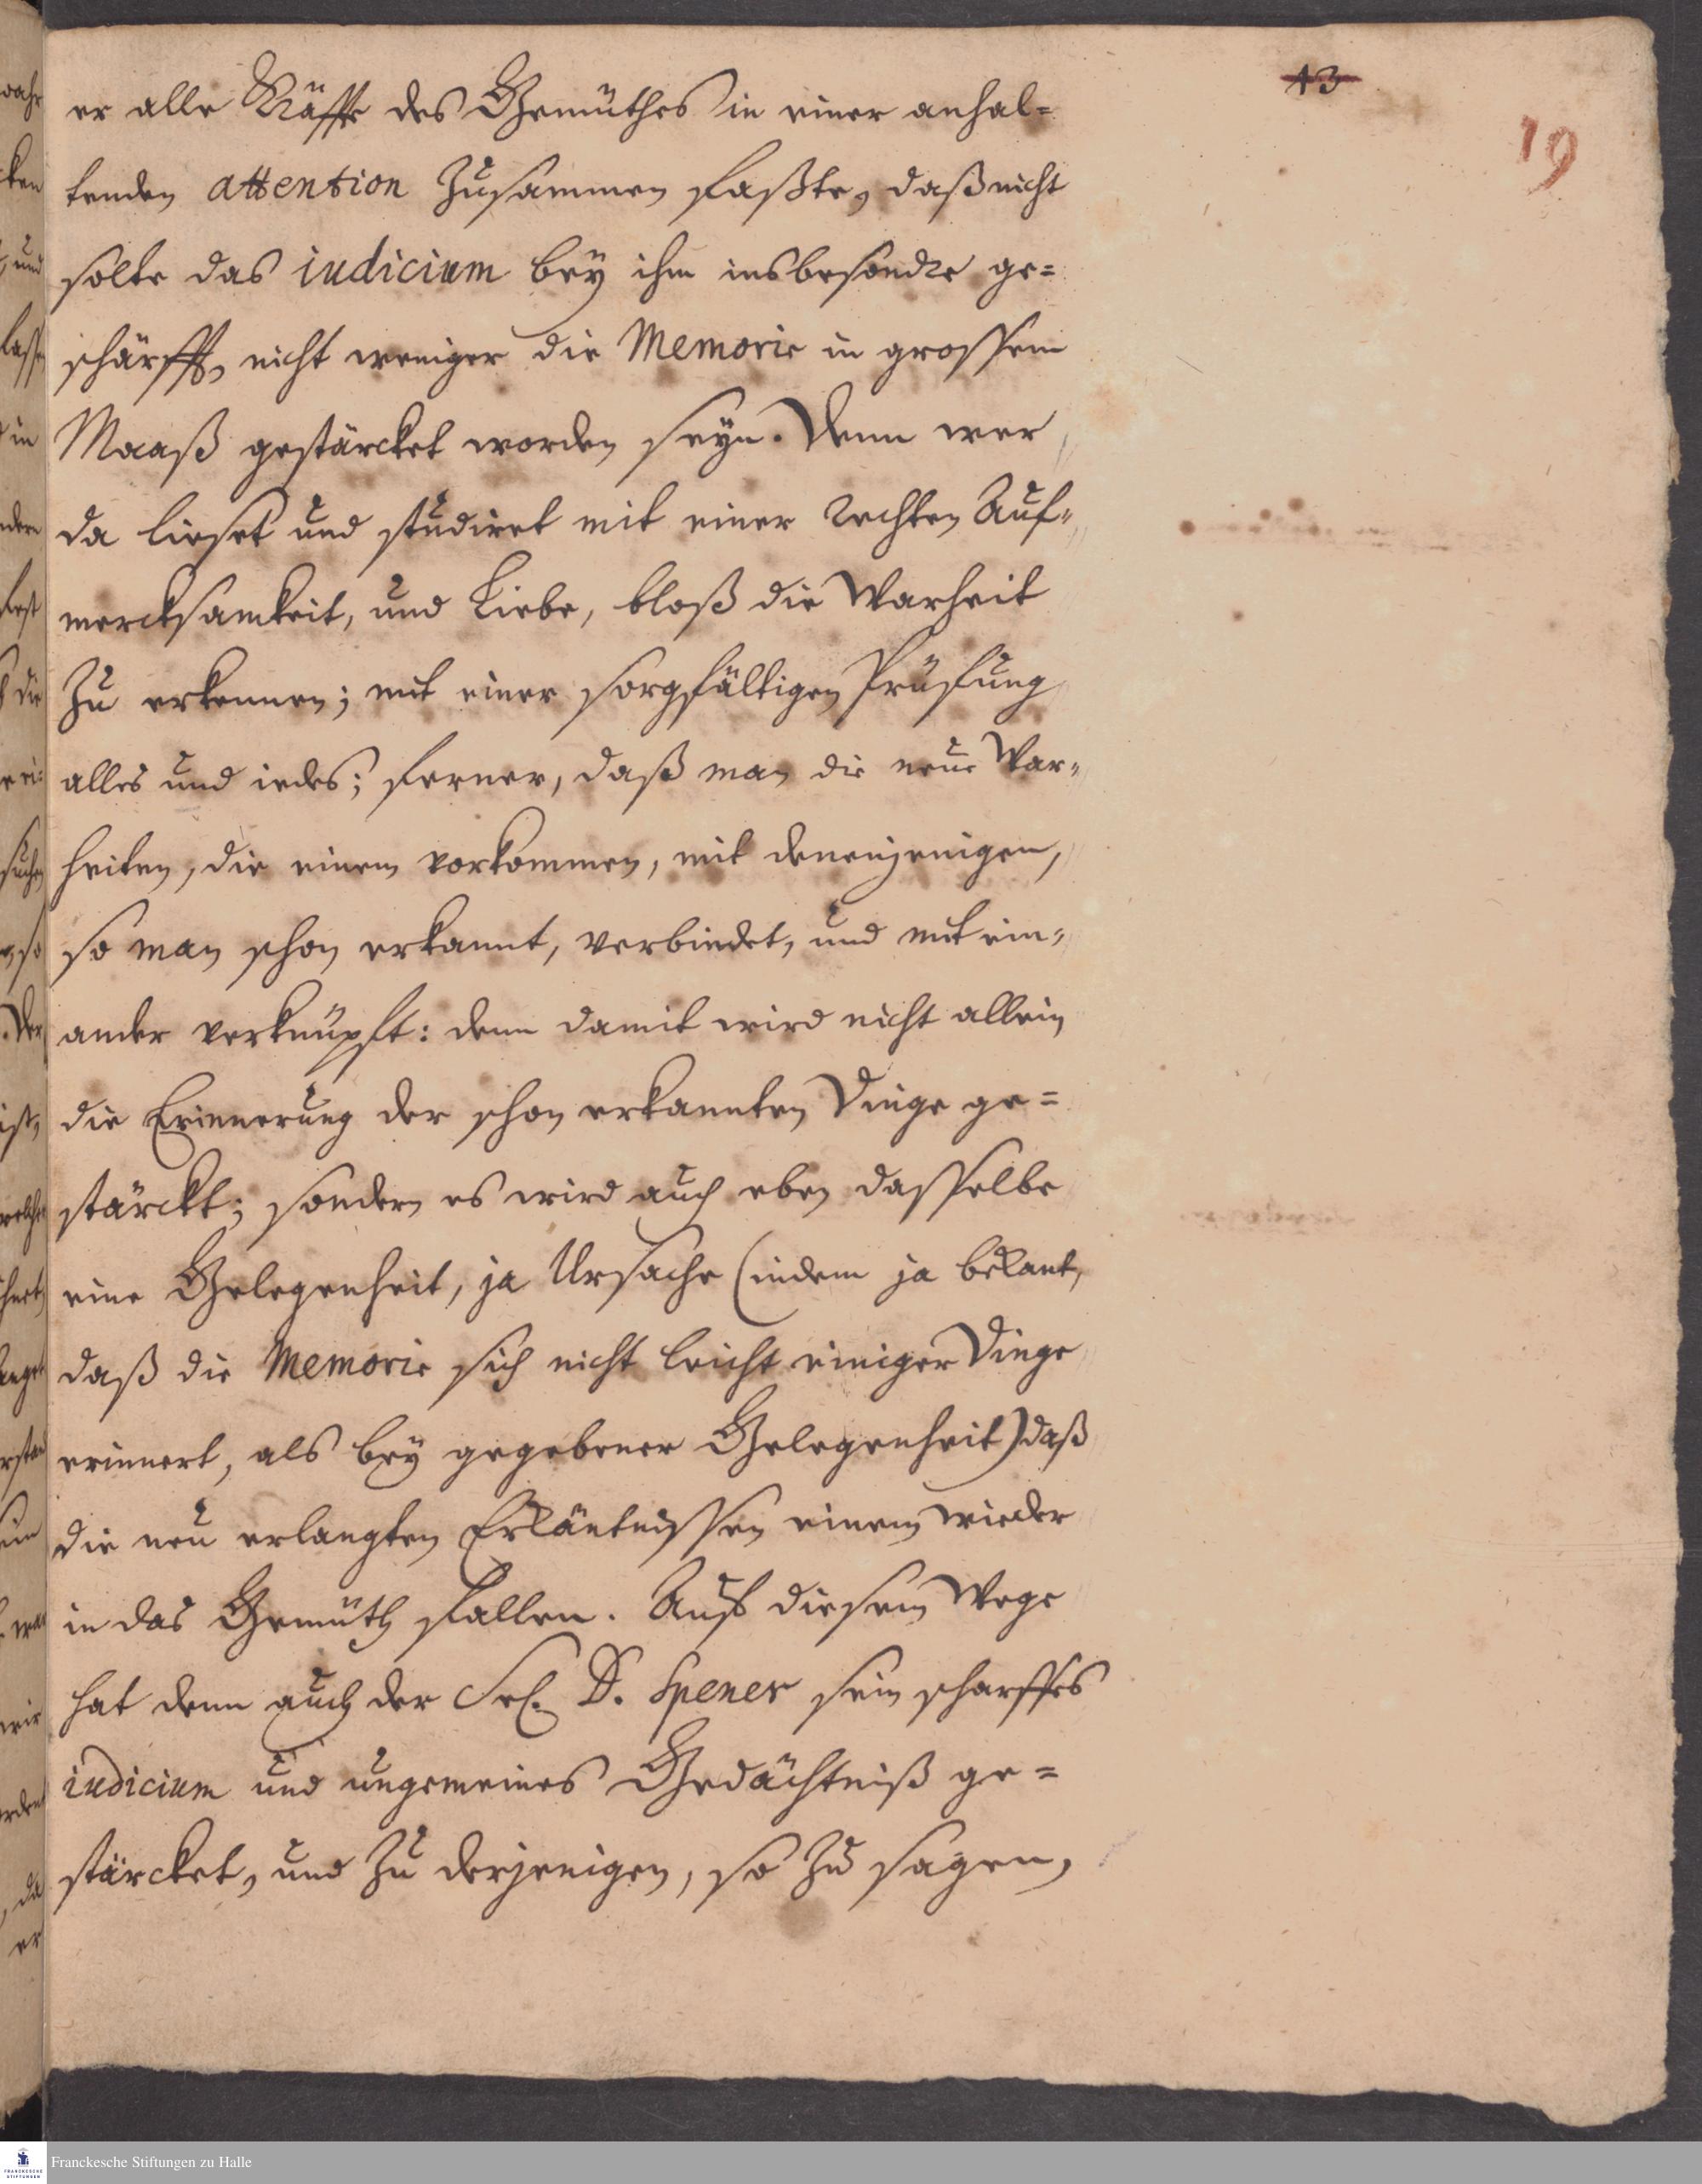 43
19
er alle Kräffte des Gemüthes in einer anhal=
tenden attention zusammen faßte, daß nicht
solte das iudicium bey ihm insbesondre ge=
schärfft, nicht weniger die Memorie in grossem
Maaß gestärcket worden seyn. Denn wer
da lieset und studiret mit einer rechten Auf=
mercksamkeit, und Liebe, bloß die Warheit
zu erkennen; mit einer sorgfältigen Prüfung
alles und iedes; ferner, daß man die neue War=
heiten, die einem vorkommen, mit denenjenigen,
so man schon erkannt, verbindet, und mit ein=
ander verknüpft: denn damit wird nicht allein
die Erinnerung der schon erkannten Dinge ge=
stärckt; sondern es wird auch eben dasselbe
eine Gelegenheit, ja Ursache (indem ja bekant,
daß die Memorie sich nicht leicht einiger Dinge
erinnert, als bey gegebener Gelegenheit) daß
die neu erlangten Erkäntnissen einem wieder
in das Gemüth fallen. Auf diesem Wege
hat denn auch der Sel. D. Spener sein scharffes
iudicium und ungemeines Gedächtniß ge=
stärcket, und zu derjenigen, so zu sagen,
Franckesche Stiftungen zu Halle